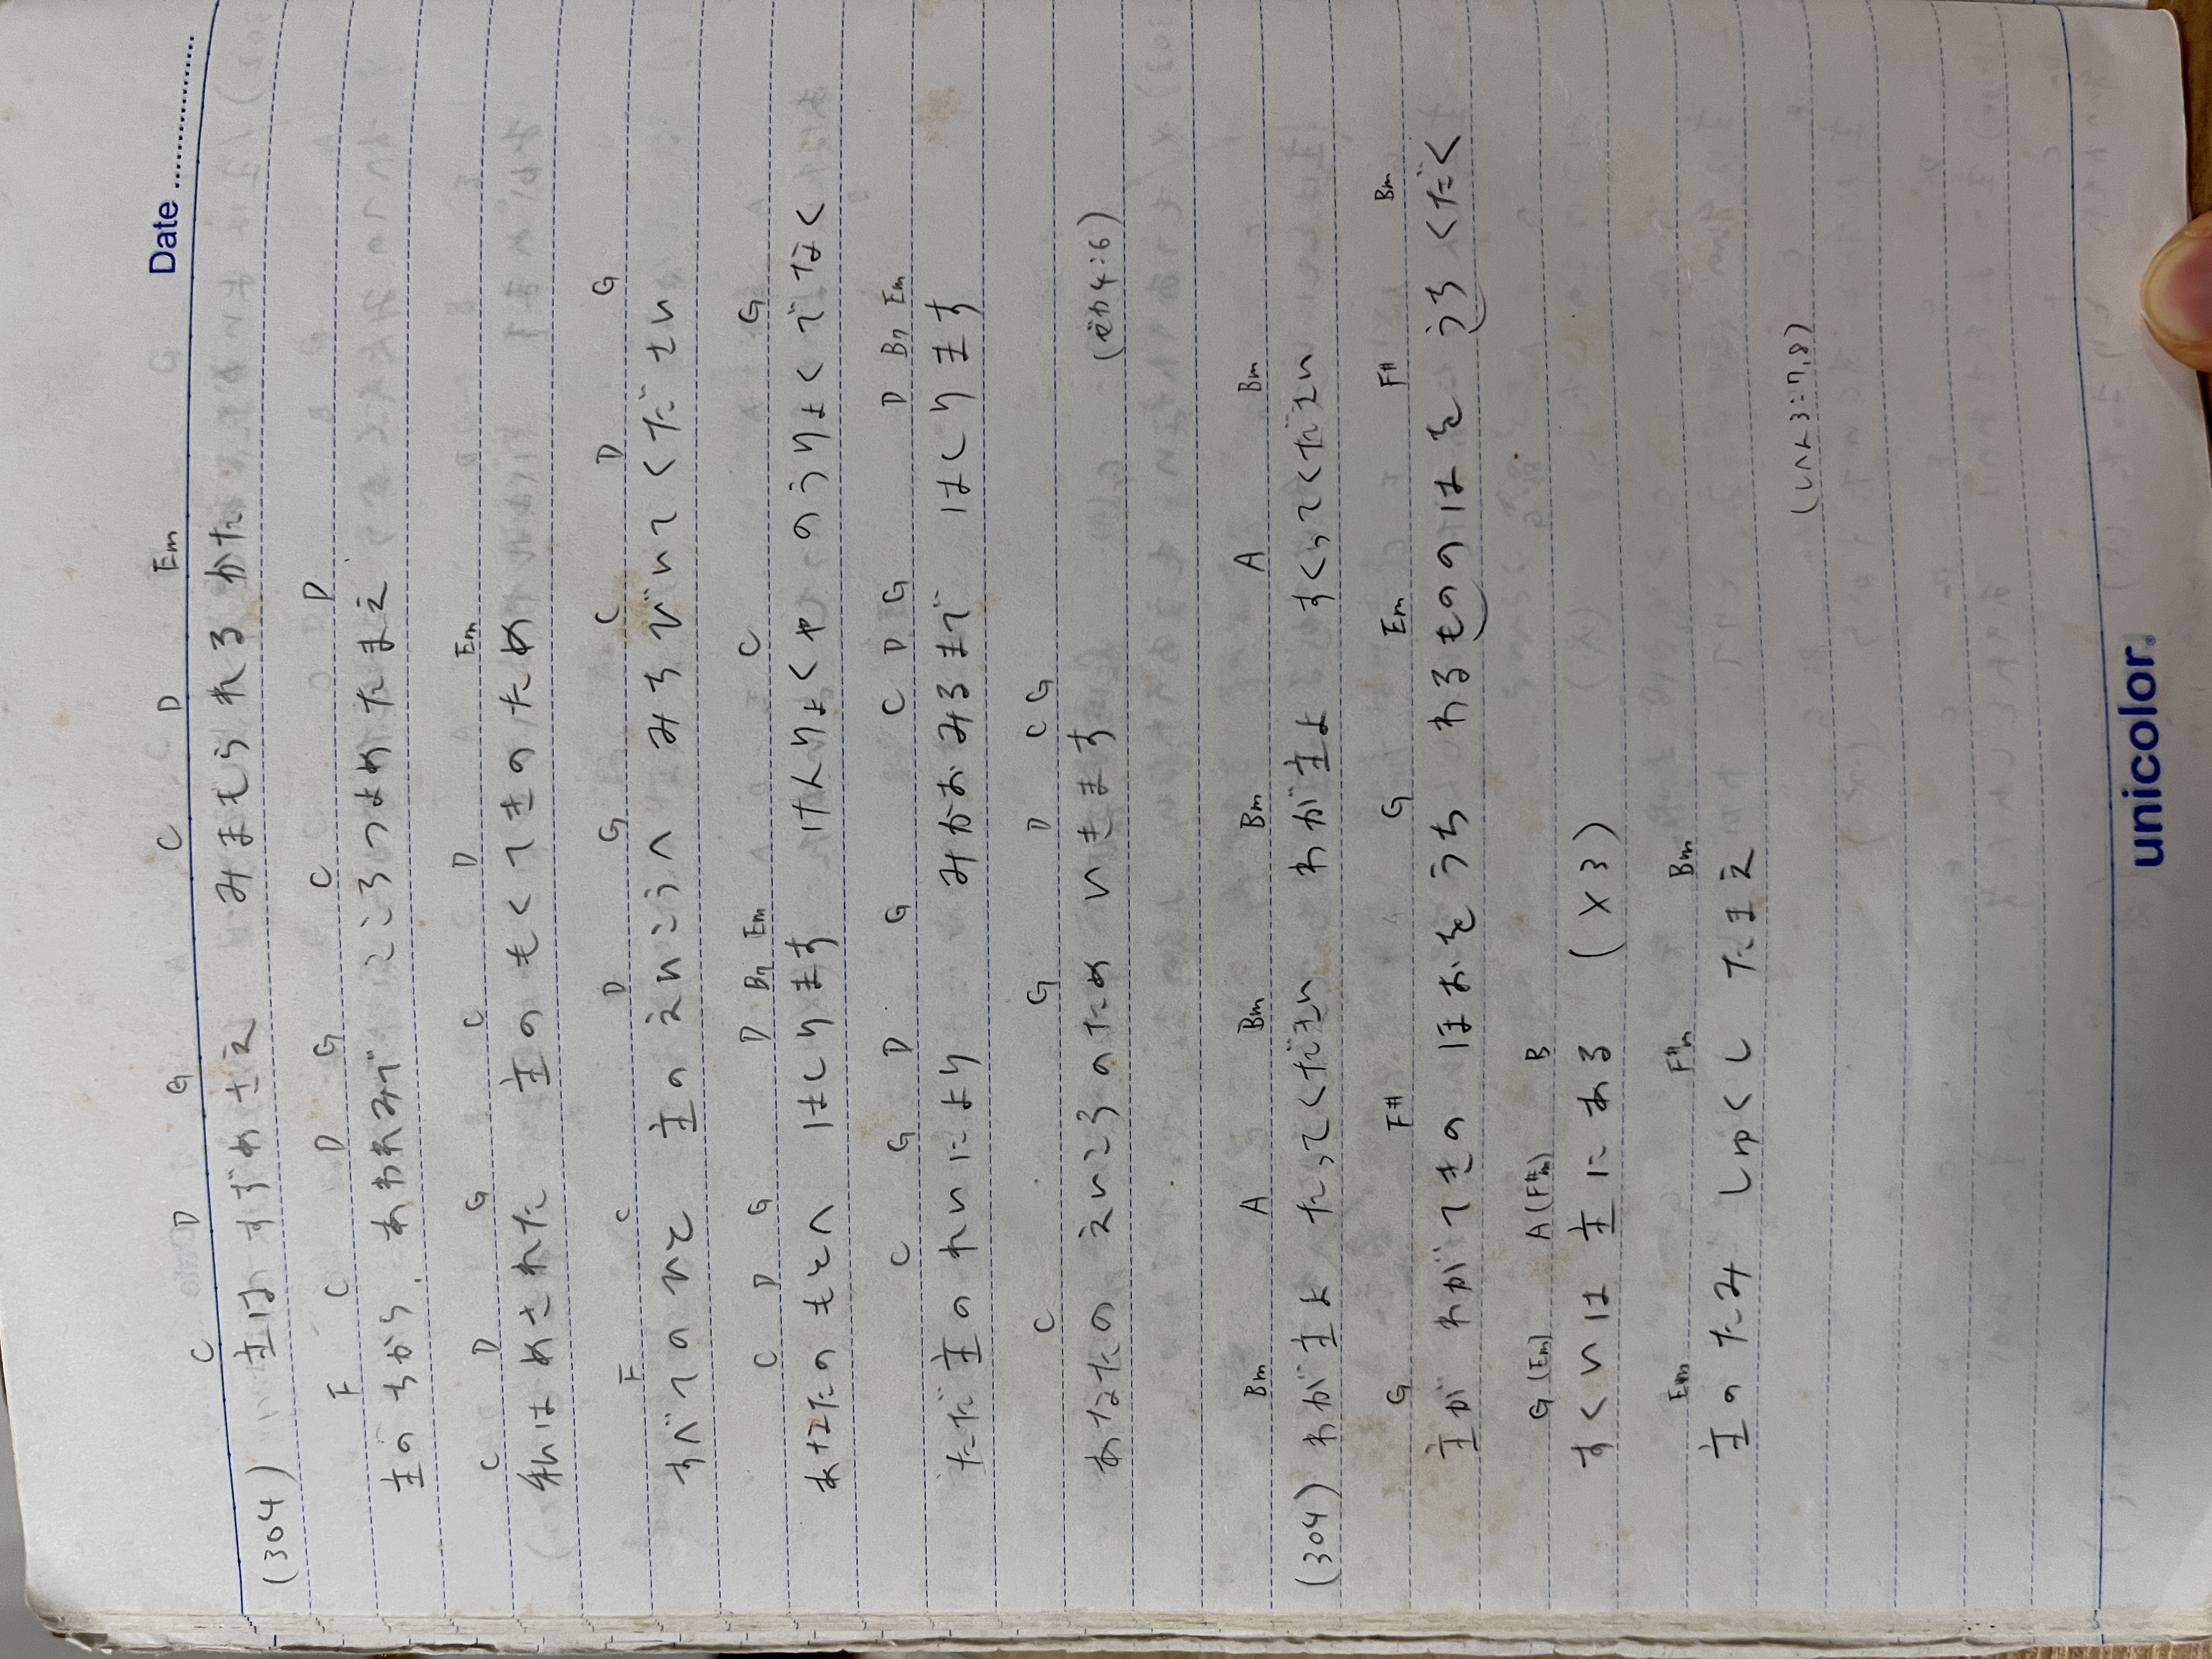 Date
C D G C D Em
(304) 主は すずめさえ みまもられる かた
F C D G C D
主のちから、あわれみで こころつよめたまえ
C D G C D Em
私は めされた 主の もくてきの ため
F C D G C D G
すべての ひと 主の えいこうへ みちびいて ください
C D G D Bm Em C G
あなたのもとへ はしります けんりょくや のうりょくでなく
C G D G C D G D Bm Em
ただ 主の れいにより みかおみるまで はしります
C G D C G
あなたの えいこうのため いきます (ゼカ4:6)
Bm A Bm Bm A Bm
(304) わが主よ たってください わが主よ すくってください
G F# G Em F# Bm
主が わがてきの ほおをうち わるものの はを うちくだく
G(Em) A(F#m) B
すくいは 主に ある (×3)
Em F#m Bm
主の たみ しゅくし たまえ
(しへん3:7,8)
unicolor.